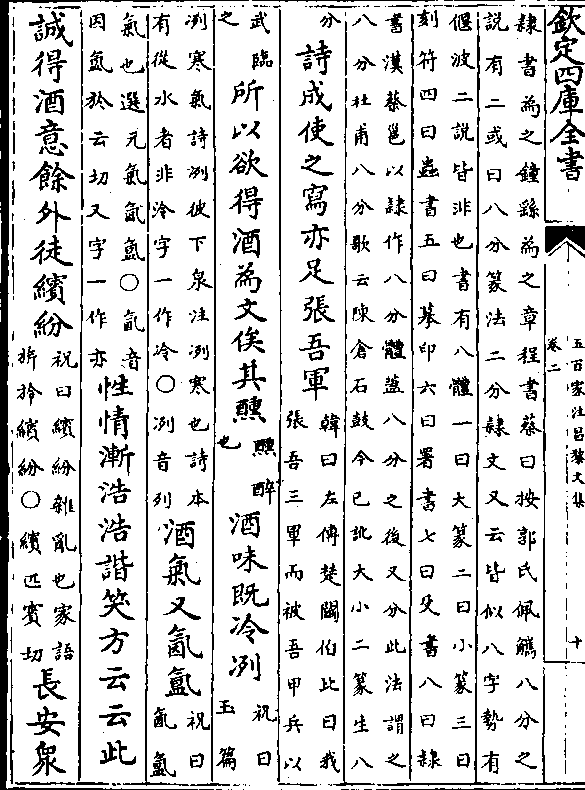 欽定四庫全書
五百家注昌黎文集
卷二
十
隸書為之鐘繇為之章程書蔡曰按郭氏佩觿八分之
說有二或曰八分篆法二分隸文又云皆似八字勢有
偃波二說皆非也書有八體一曰大篆二曰小篆三曰
刻符四曰蟲書五曰摹印六曰署書七曰殳書八曰隸
書漢蔡邕以隸作八分體蓋八分之後又分此法謂之
八分杜甫八分歌云陳倉石鼓今已訛大小二篆生八
分
詩成使之寫亦足張吾軍
韓曰左傳楚鬬伯比曰我
張吾三軍而被吾甲兵以
武臨
之
所以欲得酒為文俟其醺
醺醉
也
酒味既冷冽
祝曰
玉篇
冽寒氣詩冽彼下泉注冽寒也詩本
有從水者非泠字一作冷○冽音列
酒氣又氤氳
祝曰
氤氳
氣也選元氣氤氳○氤音
因氳於云切又字一作亦
性情漸浩浩諧笑方云云此
誠得酒意餘外徒繽紛
祝曰繽紛雜亂也家語
旂繽紛○繽匹賓切
長安眾